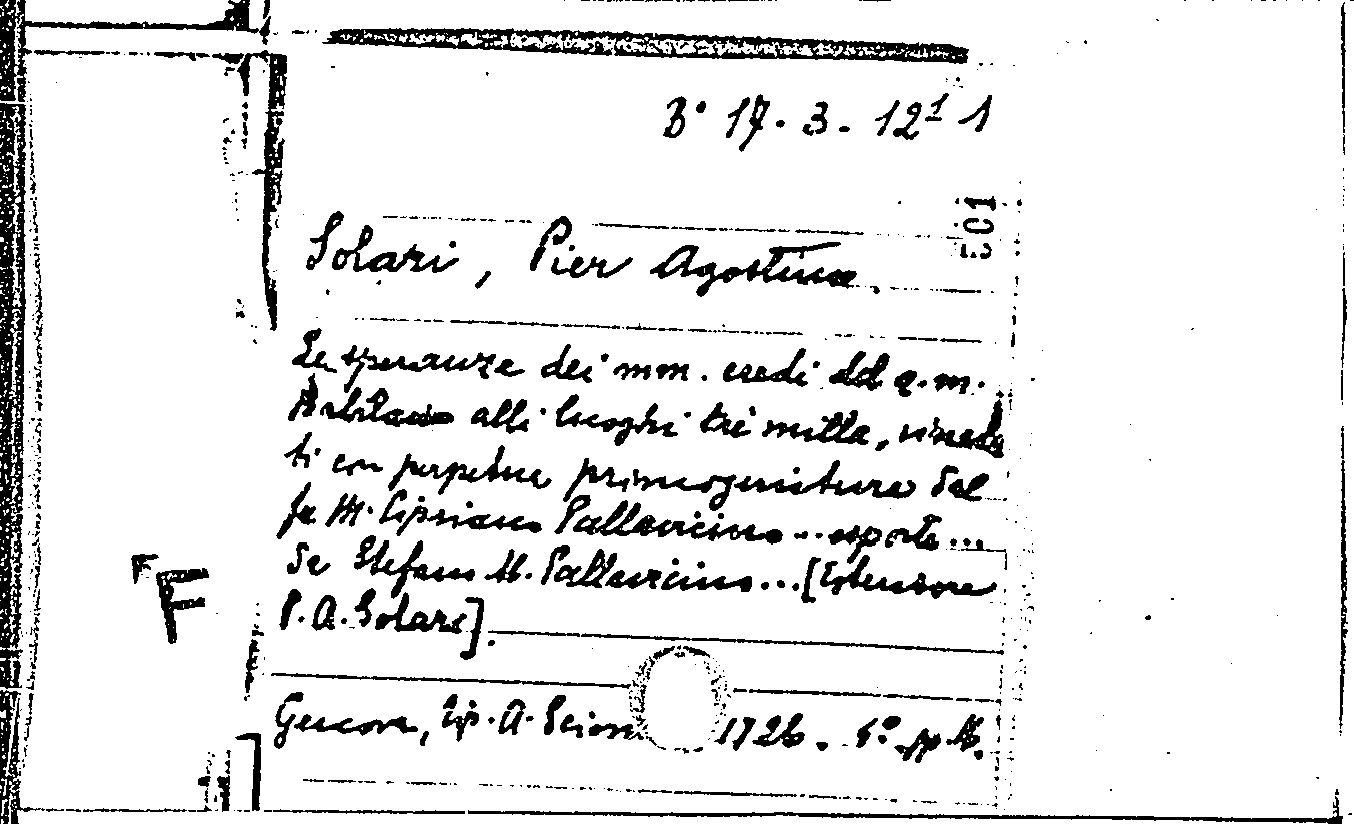 3° 17. 3. 12¹ 1
EC1
Solari, Pier Agostino.
Le speranze dei mm. eredi del q. m.
alli luoghi tre milla, vincola
ti con perpetua primogenitura dal
fu M. Cipriano Pallavicino ... esposte ...
da Stefano M. Pallavicino ... [Estensore
P. A. Solari].
F
F
Genova, Tip. A. 1726. pp.